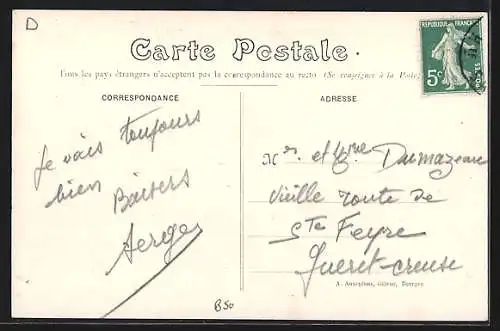 D
Carte Postale
Tous les pays étrangers n'acceptent pas la correspondance au recto (Se renseigner à la Poste)
CORRESPONDANCE
ADRESSE
REPUBLIQUE FRANÇAISE
5c
POSTES
Je vais toujours
bien Baisers
Serge
Mr et Mme Dumazeau
vieille route de
Ste Feyre
Gueret-creuse
B50